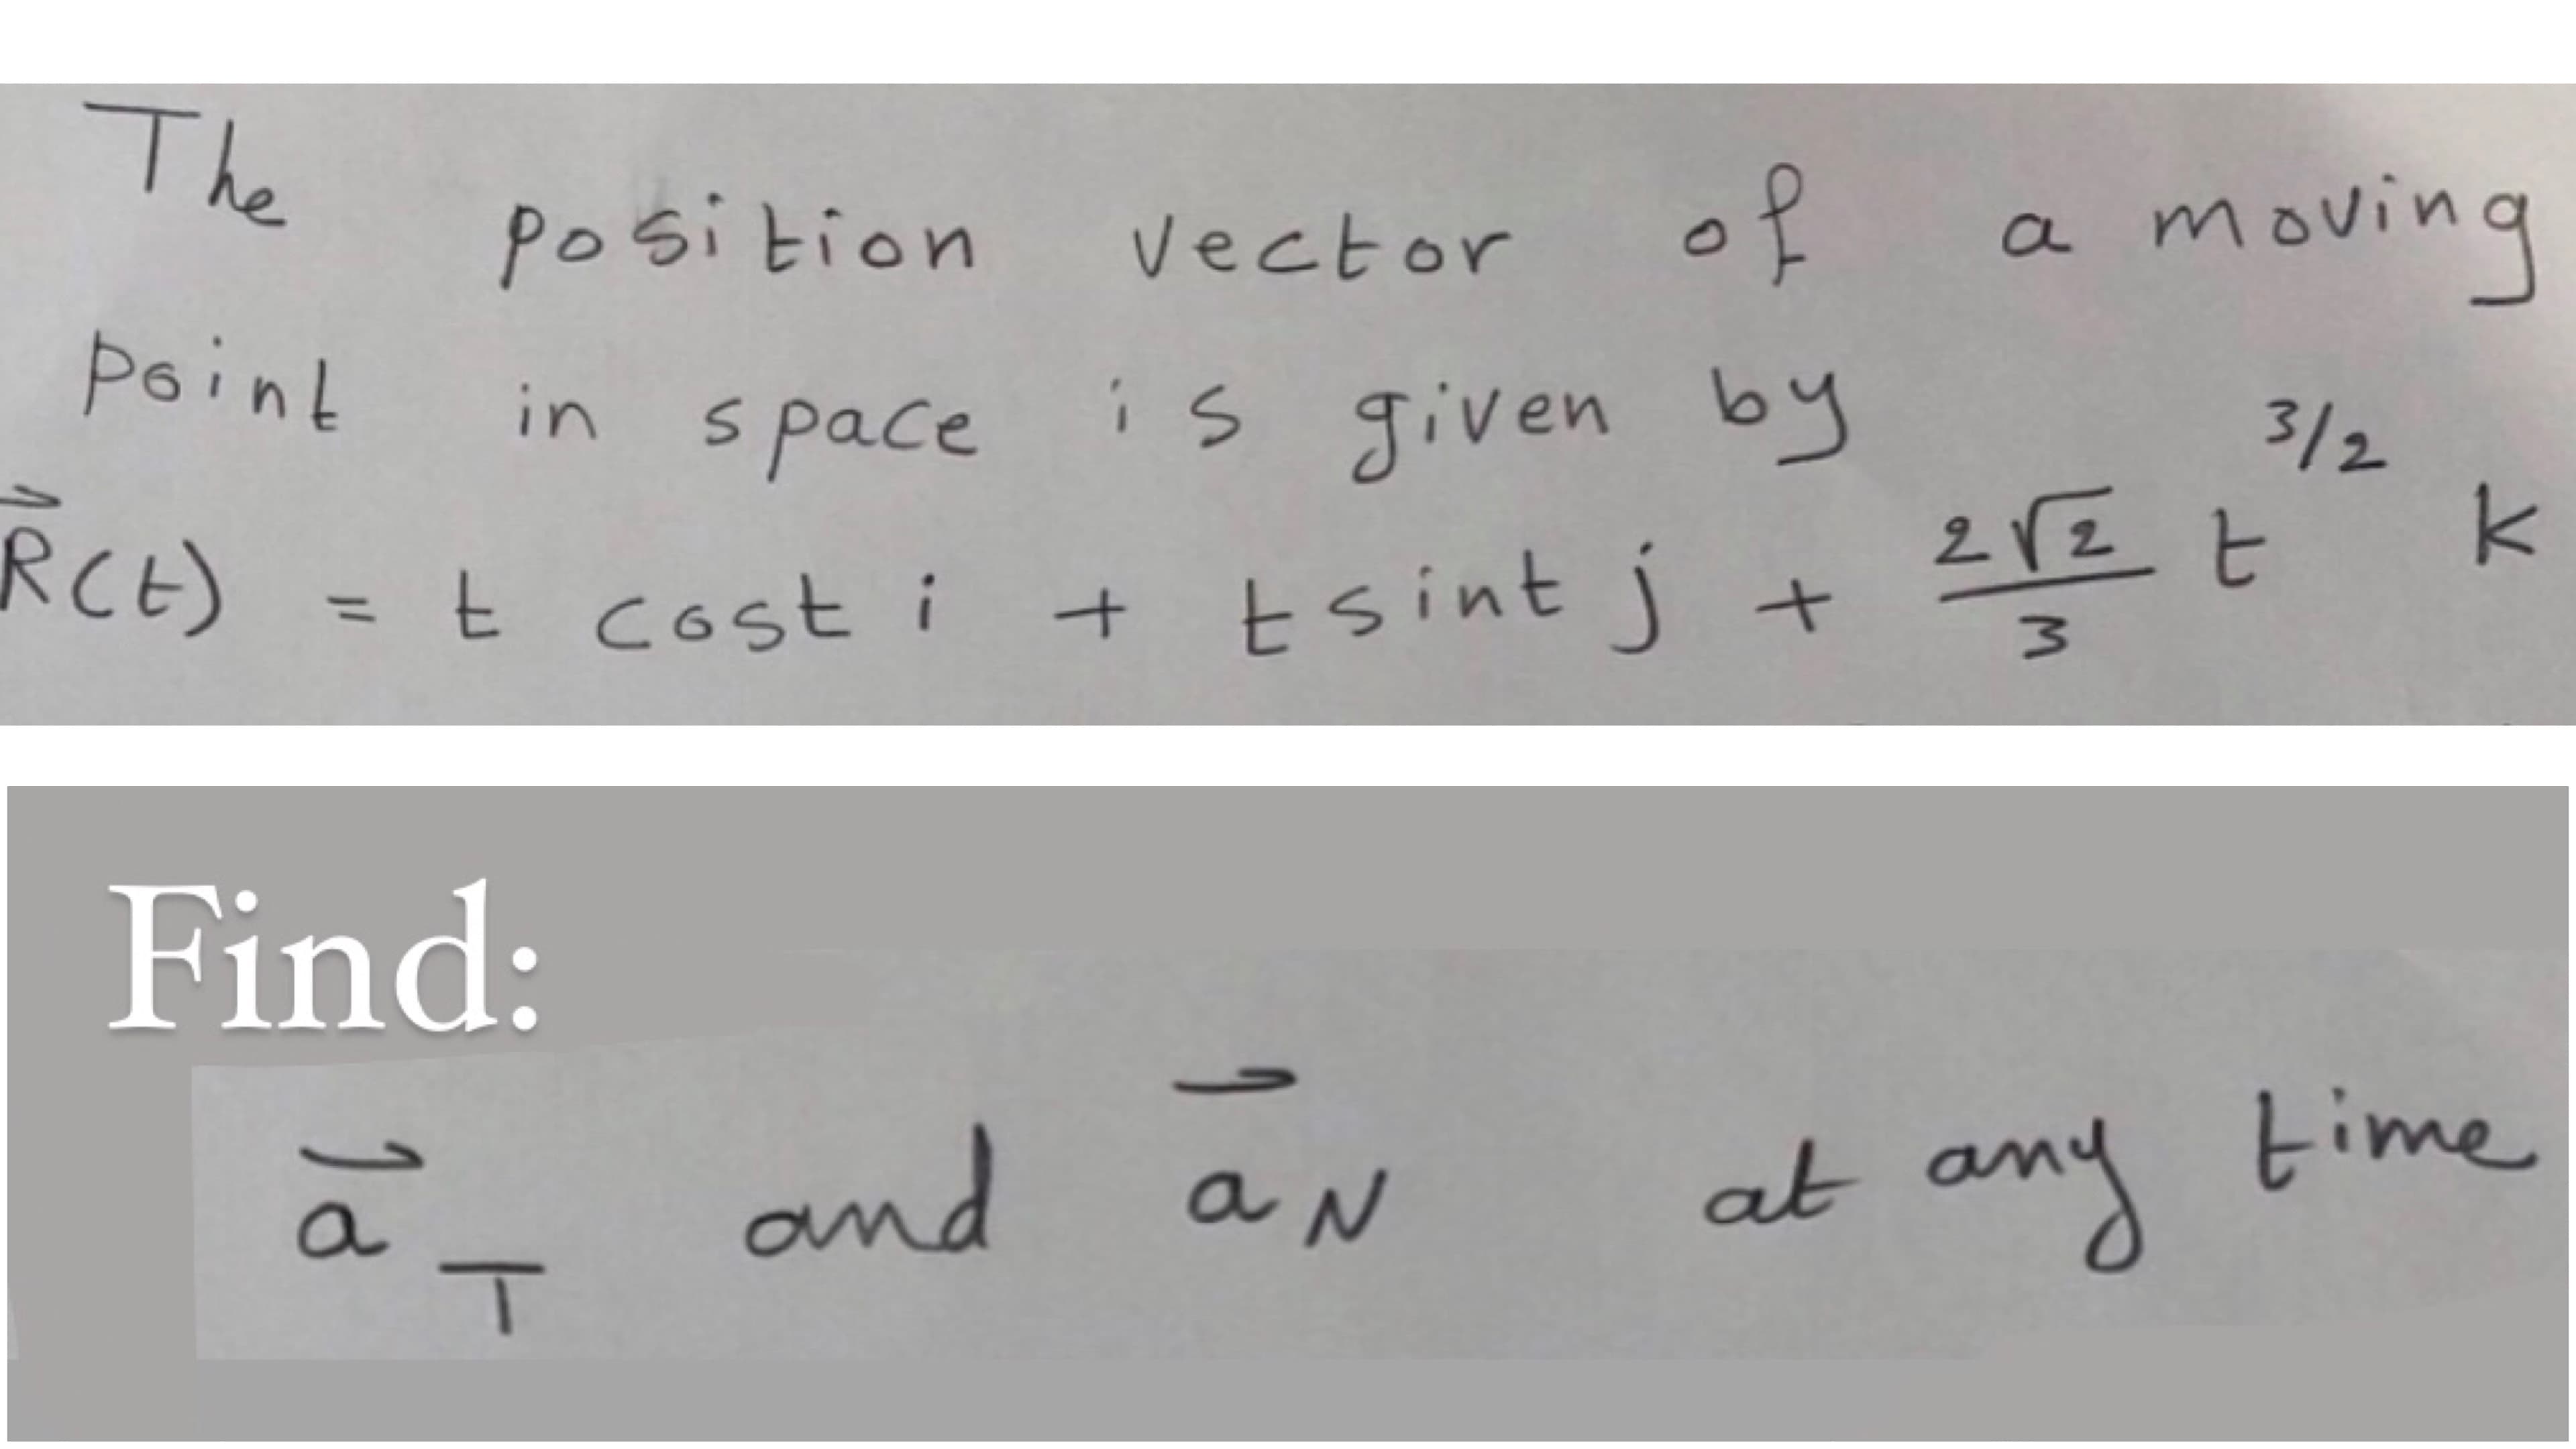 The position vector of a moving
point in space is given by
R⃗(t) = t cost i + t sint j + 2√2/3 t^3/2 k
Find:
a⃗_T and a⃗_N at any time